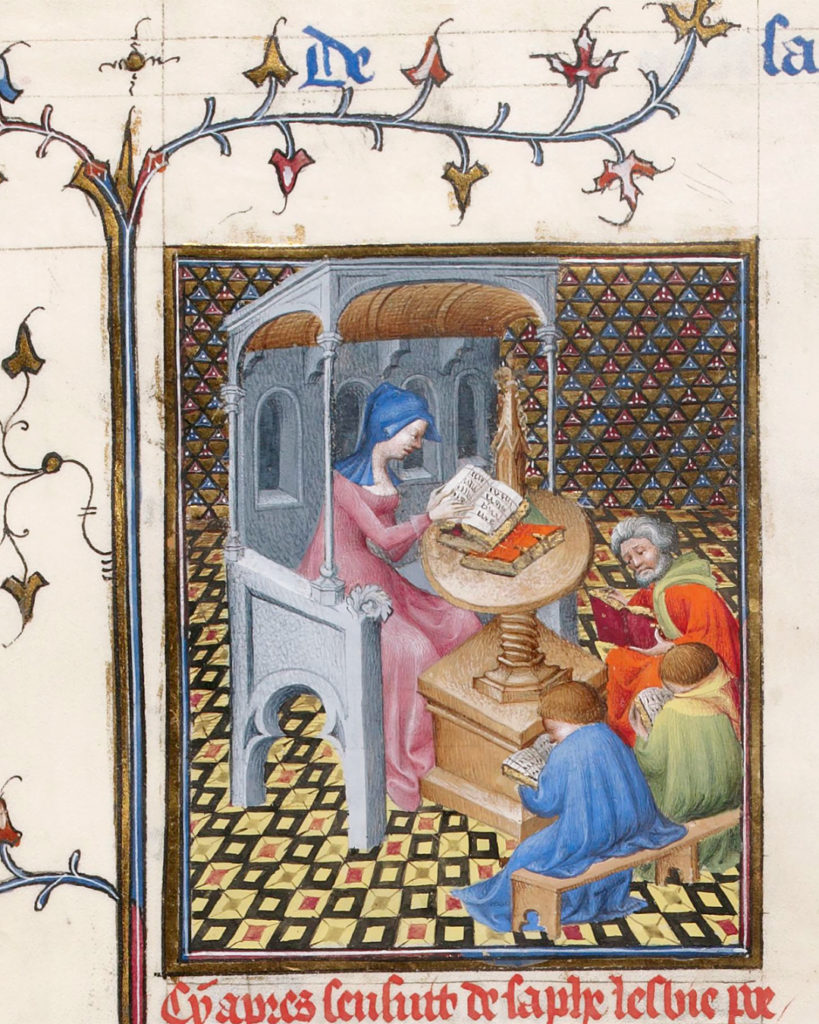 De
sa
Cy apres sensuit de saphe lesbie poe